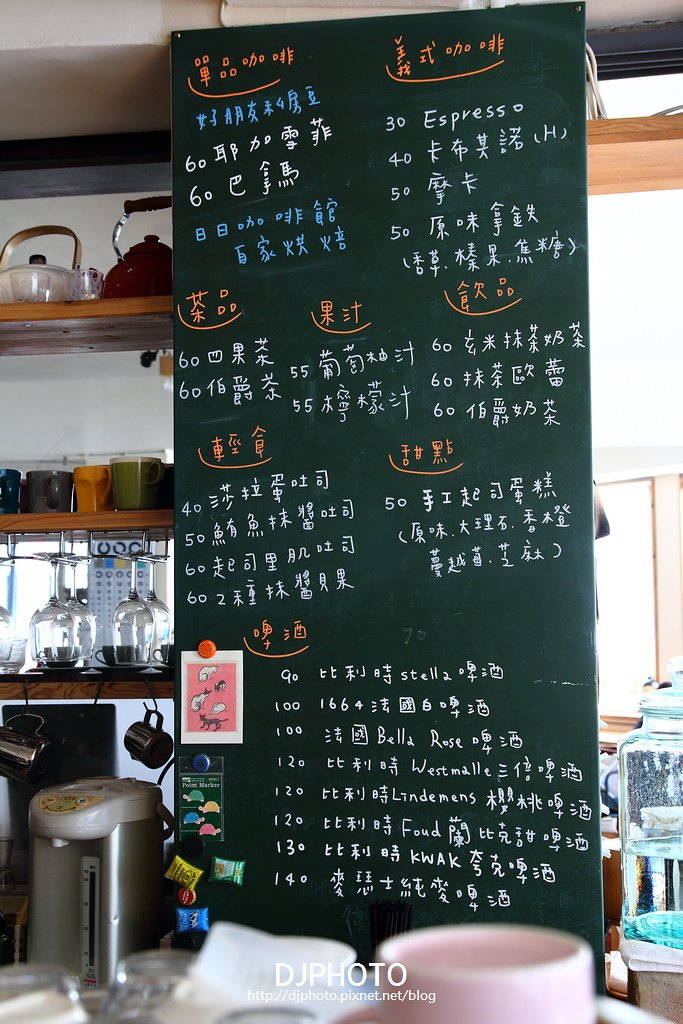 單品咖啡
好朋友私房豆
60 耶加雪菲
60 巴拿馬
日日咖啡館
自家烘焙
義式咖啡
30 Espresso
40 卡布其諾(H)
50 摩卡
50 原味拿鉄
(香草.榛果.焦糖)
茶品
60 四果茶
60 伯爵茶
果汁
55 葡萄柚汁
55 檸檬汁
飲品
60 玄米抹茶奶茶
60 抹茶歐蕾
60 伯爵奶茶
輕食
40 莎拉蛋吐司
50 鮪魚抹醬吐司
60 起司里肌吐司
60 2種抹醬貝果
甜點
50 手工起司蛋糕
(原味.大理石.香橙
蔓越莓.芝麻)
啤酒
90 比利時 stella 啤酒
100 1664 法國白啤酒
100 法國 Bella Rose 啤酒
120 比利時 Westmalle 三倍啤酒
120 比利時 Lindemens 櫻桃啤酒
120 比利時 Foud 蘭比克甜啤酒
130 比利時 KWAK 夸克啤酒
140 麥瑟士純麥啤酒
Point Marker
DJPHOTO
http://djphoto.pixnet.net/blog